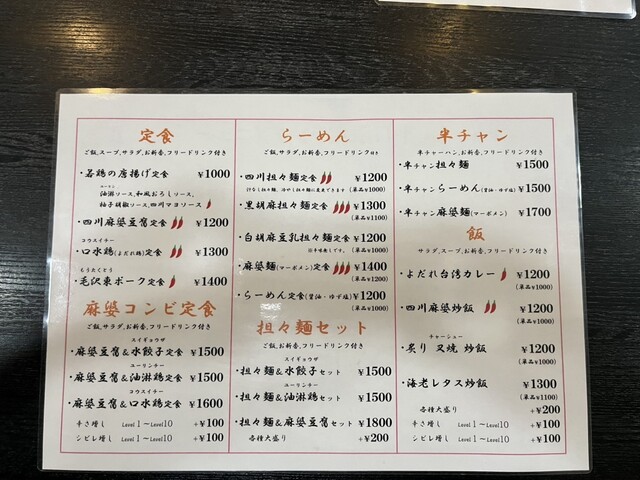 定食
ご飯、スープ、サラダ、お新香、フリードリンク付き
・若鶏の唐揚げ定食 ¥1000
ユーリン
油淋ソース、和風おろしソース、
柚子胡椒ソース、四川マヨソース
・四川麻婆豆腐定食 ¥1200
コウスイチー
・口水鶏(よだれ鶏)定食 ¥1300
もうたくとう
・毛沢東ポーク定食 ¥1400
麻婆コンビ定食
ご飯、サラダ、お新香、フリードリンク付き
スイギョウザ
・麻婆豆腐&水餃子定食 ¥1500
ユーリンチー
・麻婆豆腐&油淋鶏定食 ¥1500
コウスイチー
・麻婆豆腐&口水鶏定食 ¥1600
辛さ増し Level1〜Level10 +¥100
シビレ増し Level1〜Level10 +¥100
らーめん
ご飯、サラダ、お新香、フリードリンク付き
・四川担々麺定食 ¥1200
(単品¥1000)
・黒胡麻担々麺定食 ¥1300
(単品¥1100)
・白胡麻豆乳担々麺定食 ¥1200
(単品¥1000)
・麻婆麺(マーボメン)定食 ¥1400
(単品¥1200)
・らーめん定食(醤油・ゆず塩) ¥1200
(単品¥1000)
担々麺セット
ご飯、サラダ、お新香、フリードリンク付き
スイギョウザ
・担々麺&水餃子セット ¥1500
ユーリンチー
・担々麺&油淋鶏セット ¥1500
・担々麺&麻婆豆腐セット ¥1800
各種大盛り +¥200
半チャン
半チャーハン、お新香、フリードリンク付き
・半チャン担々麺 ¥1500
・半チャンらーめん(醤油・ゆず塩) ¥1500
・半チャン麻婆麺(マーボメン) ¥1700
飯
サラダ、スープ、お新香、フリードリンク付き
・よだれ台湾カレー ¥1200
(単品¥1000)
・四川麻婆炒飯 ¥1200
(単品¥1000)
チャーシュー
・炙り 叉焼 炒飯 ¥1200
(単品¥1000)
・海老レタス炒飯 ¥1300
(単品¥1100)
各種大盛り +¥200
辛さ増し Level1〜Level10 +¥100
シビレ増し Level1〜Level10 +¥100